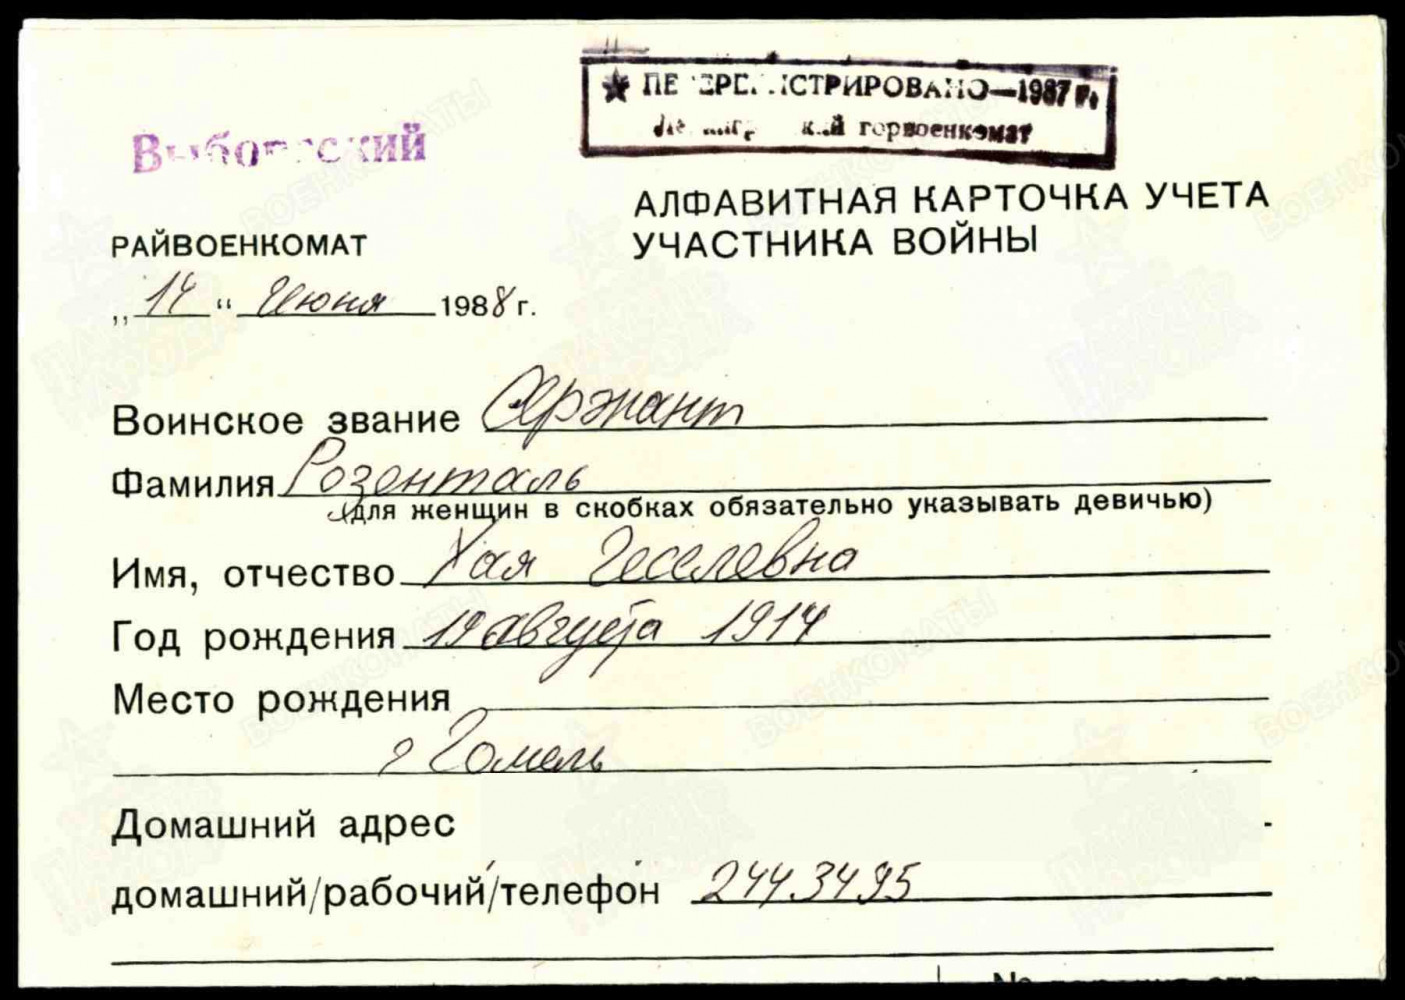 ★ ПЕРЕРЕГИСТРИРОВАНО—1987 г.
Ленинградский горвоенкомат
Выборгский
АЛФАВИТНАЯ КАРТОЧКА УЧЕТА
УЧАСТНИКА ВОЙНЫ
РАЙВОЕНКОМАТ
„14“ Июня 1988 г.
Воинское звание Сержант
Фамилия Розенталь
(для женщин в скобках обязательно указывать девичью)
Имя, отчество Хая Геселевна
Год рождения 14 августа 1914
Место рождения
г Гомель
Домашний адрес
домашний/рабочий/телефон 2443495
ВОЕНКОМАТЫ
ПАМЯТЬ НАРОДА